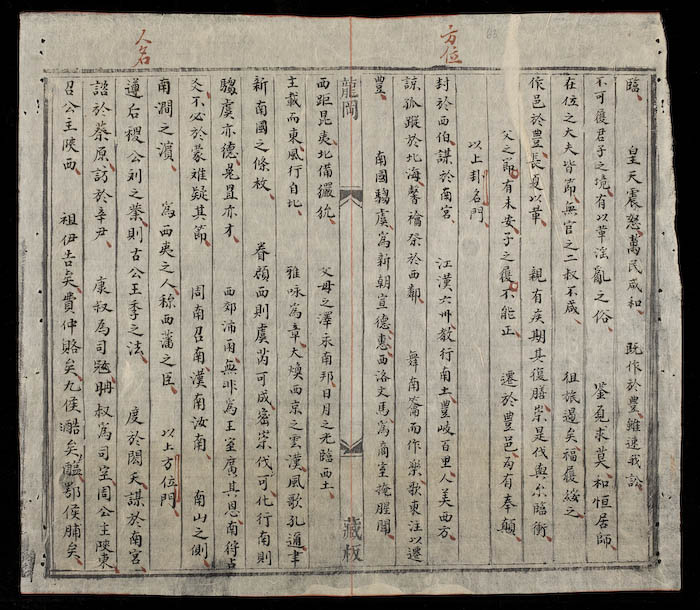 方位
人名
臨 皇天震怒萬民咸和 既作於豐雖速我訟
不可復君子之境有以革淫亂之俗 鉴觀求莫和恒居師
在位之大夫皆節無官之二叔不咸 徂旅遏矣福履綏之
作邑於豐長夏以革 親有疾期其復膳崇是伐與尔臨衝
父之節有未安子之履不能正 遷於豐邑為有奉顛
以上卦名門
封於西伯謀於南宮 江漢六州教行南土豐岐百里人美西方
諒孤蹤於北海馨禴祭於西鄰 舞南籥而作樂歌東注以遷
豐 南國騶虞為新朝宣德惠西洛文馬為商室掩腥聞
龍岡
藏板
西距昆夷北備玁狁 父母之澤永南邦日月之光臨西土
主載而東風行自北 雅咏為章大煥西京之雲漢風歌孔邇聿
新南國之條枚 眷顧西則虞芮可成密崇伐可化行南則
騶虞亦德兔罝亦才 西郊沛雨無非為王室廣其恩南狩占
爻不必於蒙難疑其節 周南召南漢南汝南 南山之側
南澗之濱 為西夷之人称西藩之臣 以上方位門
遵后稷公刘之業則古公王季之法 度於閎夭謀於南宮
諮於蔡原訪於辛尹 康叔為司寇聃叔為司空周公主陝東
召公主陝西 祖伊告矣費仲賂矣九侯醢矣鄂侯脯矣